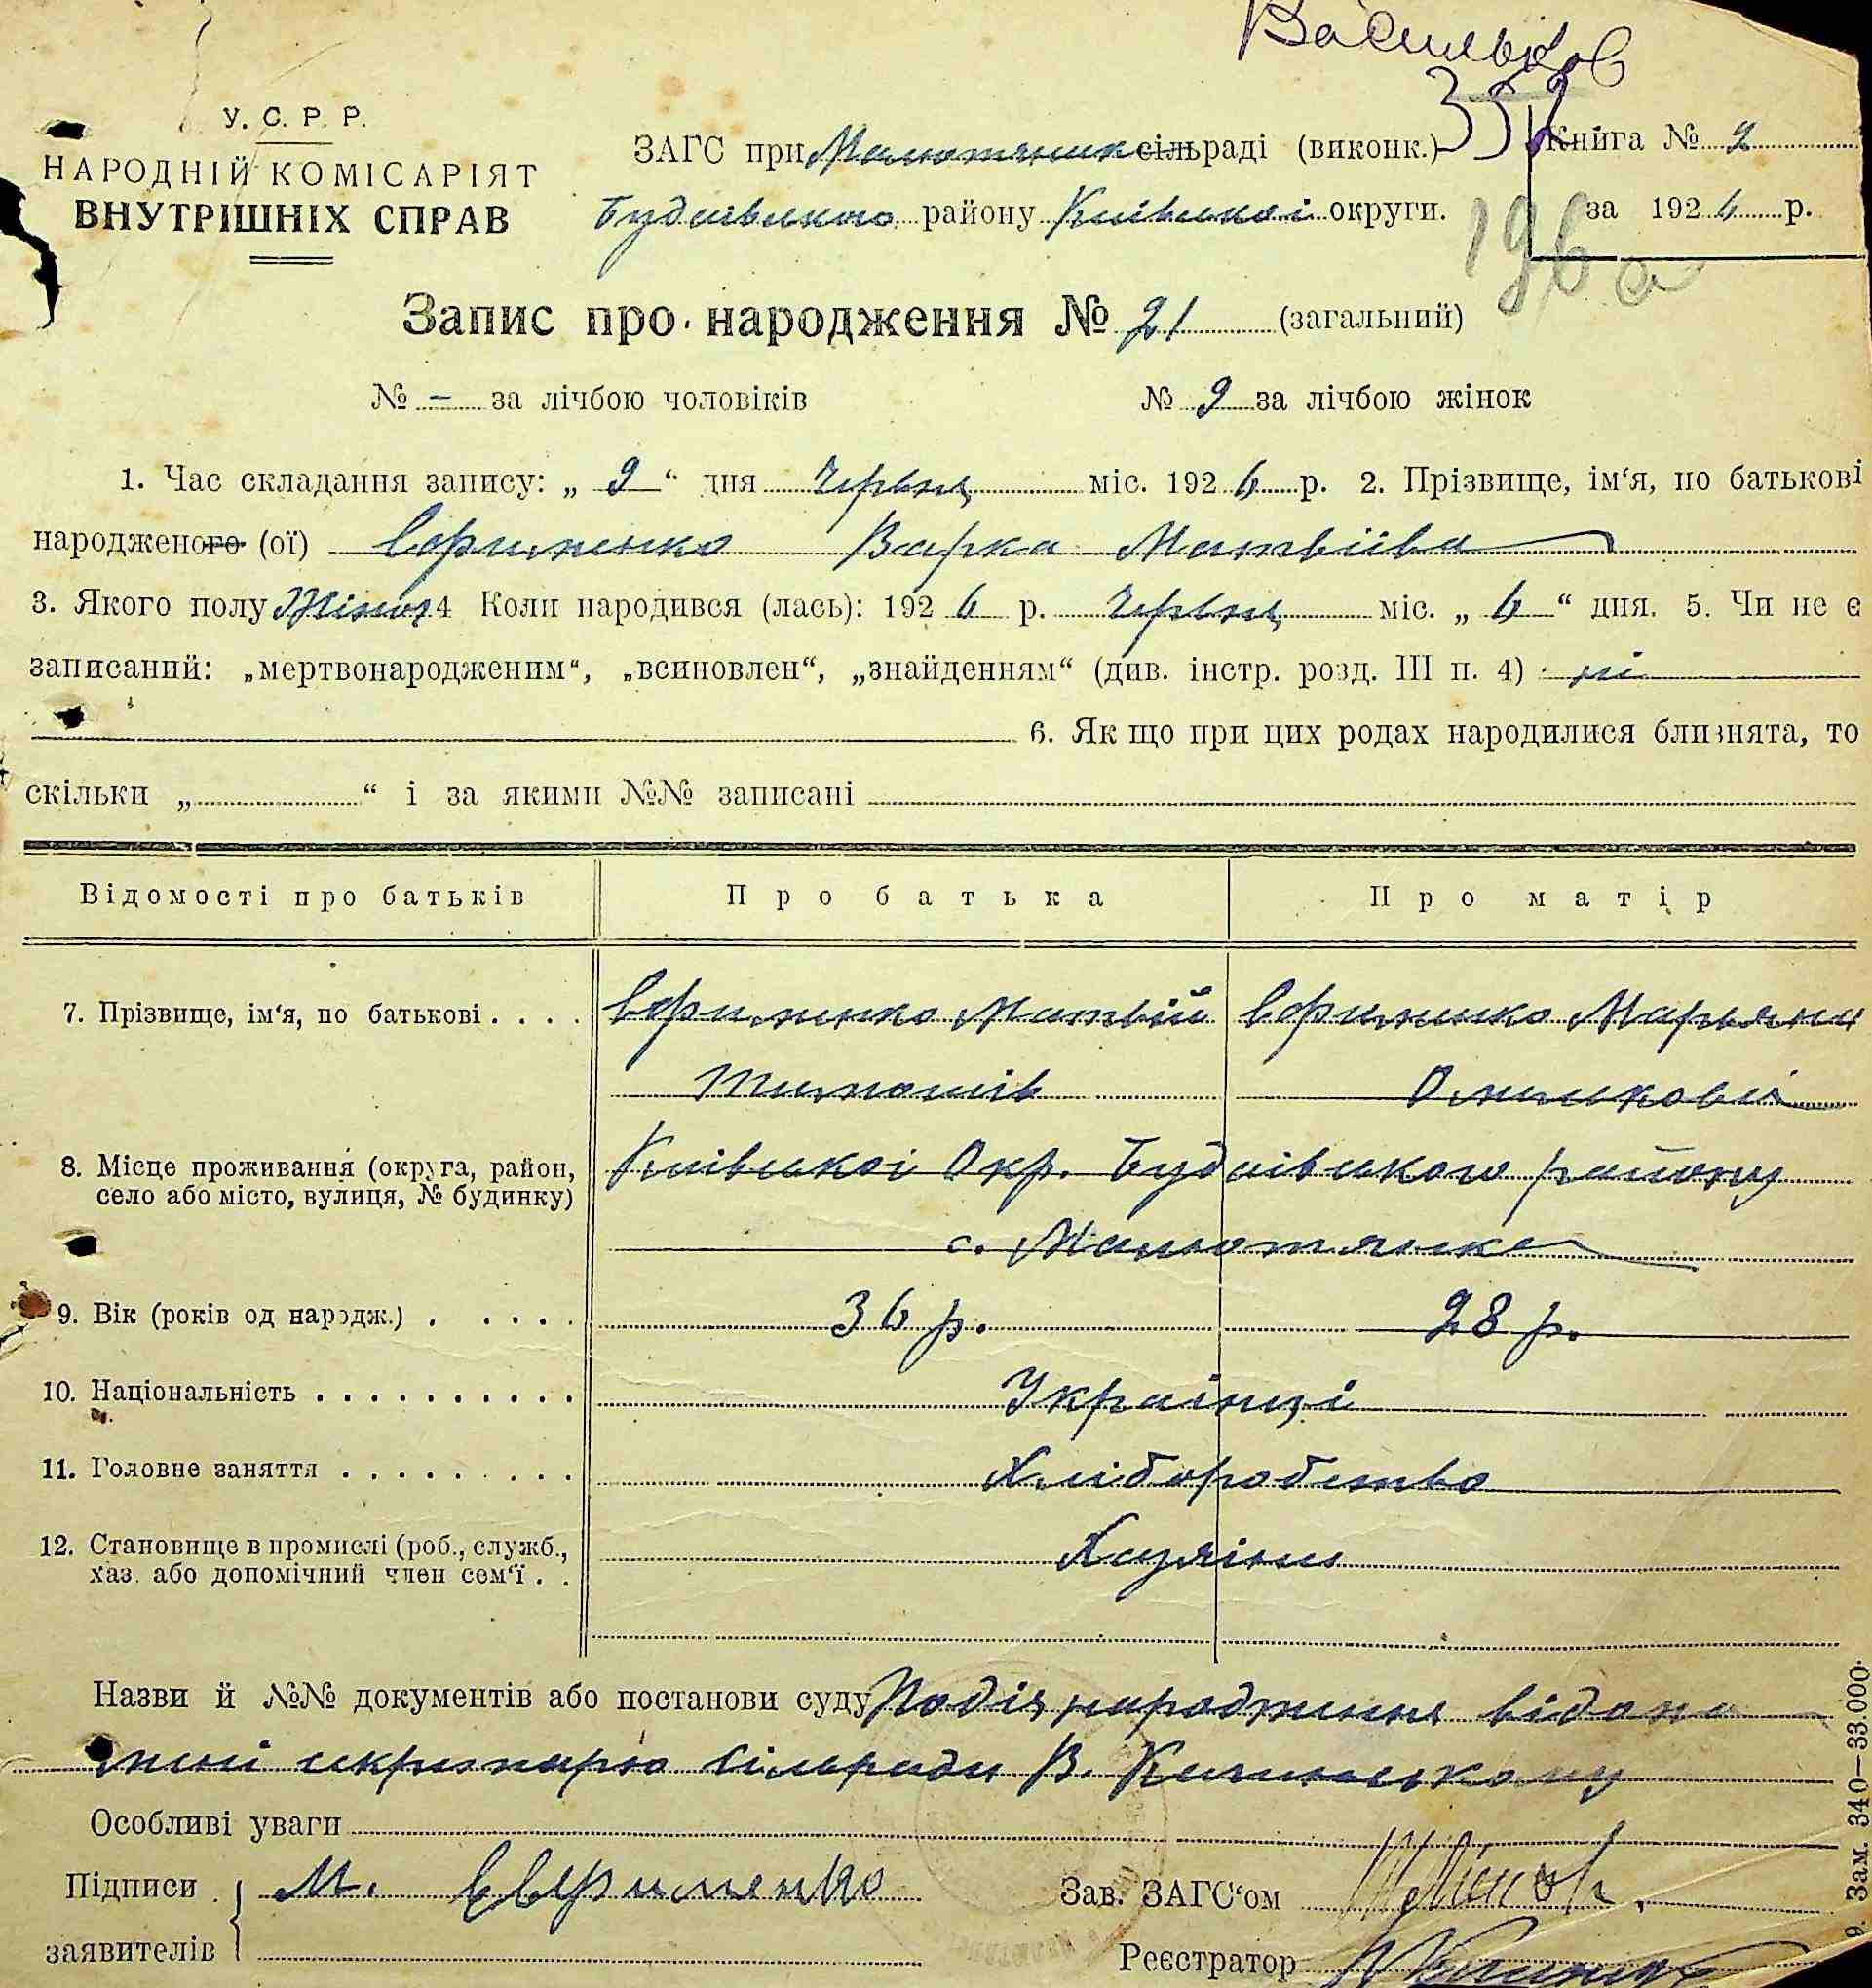 Васильків
352
У. С. Р. Р.
НАРОДНІЙ КОМІСАРІЯТ
ВНУТРІШНІХ СПРАВ
ЗАГС при Малютянск сільраді (виконк.)
Будаївського району Київської округи.
Книга № 2
за 1926 р.
196
Запис про народження № 21 (загальний)
№ – за лічбою чоловіків № 9 за лічбою жінок
1. Час складання запису: „ 9 “ дня Червня міс. 1926 р. 2. Прізвище, ім‘я, по батькові
народженого (ої) Єфименко Варка Матвіїва
3. Якого полу Жіноч 4 Коли народився (лась): 1926 р. Червня міс. „ 6 “ дня. 5. Чи не є
записаний: „мертвонародженим“, „всиновлен“, „знайденням“ (див. інстр. розд. III п. 4) ні
6. Як що при цих родах народилися близнята, то
скільки „ “ і за якими №№ записані
Відомості про батьків Про батька Про матір
7. Прізвище, ім‘я, по батькові . . . . Єфименко Матвій Єфименко Марьяна
Тимошів
8. Місце проживання (округа, район, село або місто, вулиця, № будинку) Київськоі Окр. Будаівського району
с. Малютянка
9. Вік (років од народж.) . . . . . 36 р. 28 р.
10. Національність . . . . . . . . . . Украінці
11. Головне заняття . . . . . . . . . Хліборобство
12. Становище в промислі (роб., служб., хаз. або допомічний член сем‘ї . . Хазяіни
Назви й №№ документів або постанови суду Подія народження відома
секретарю сільради В.
Особливі уваги
Підписи М. Евфименко Зав. ЗАГС‘ом
заявителів Реєстратор
9. Зам. 340—33.000.